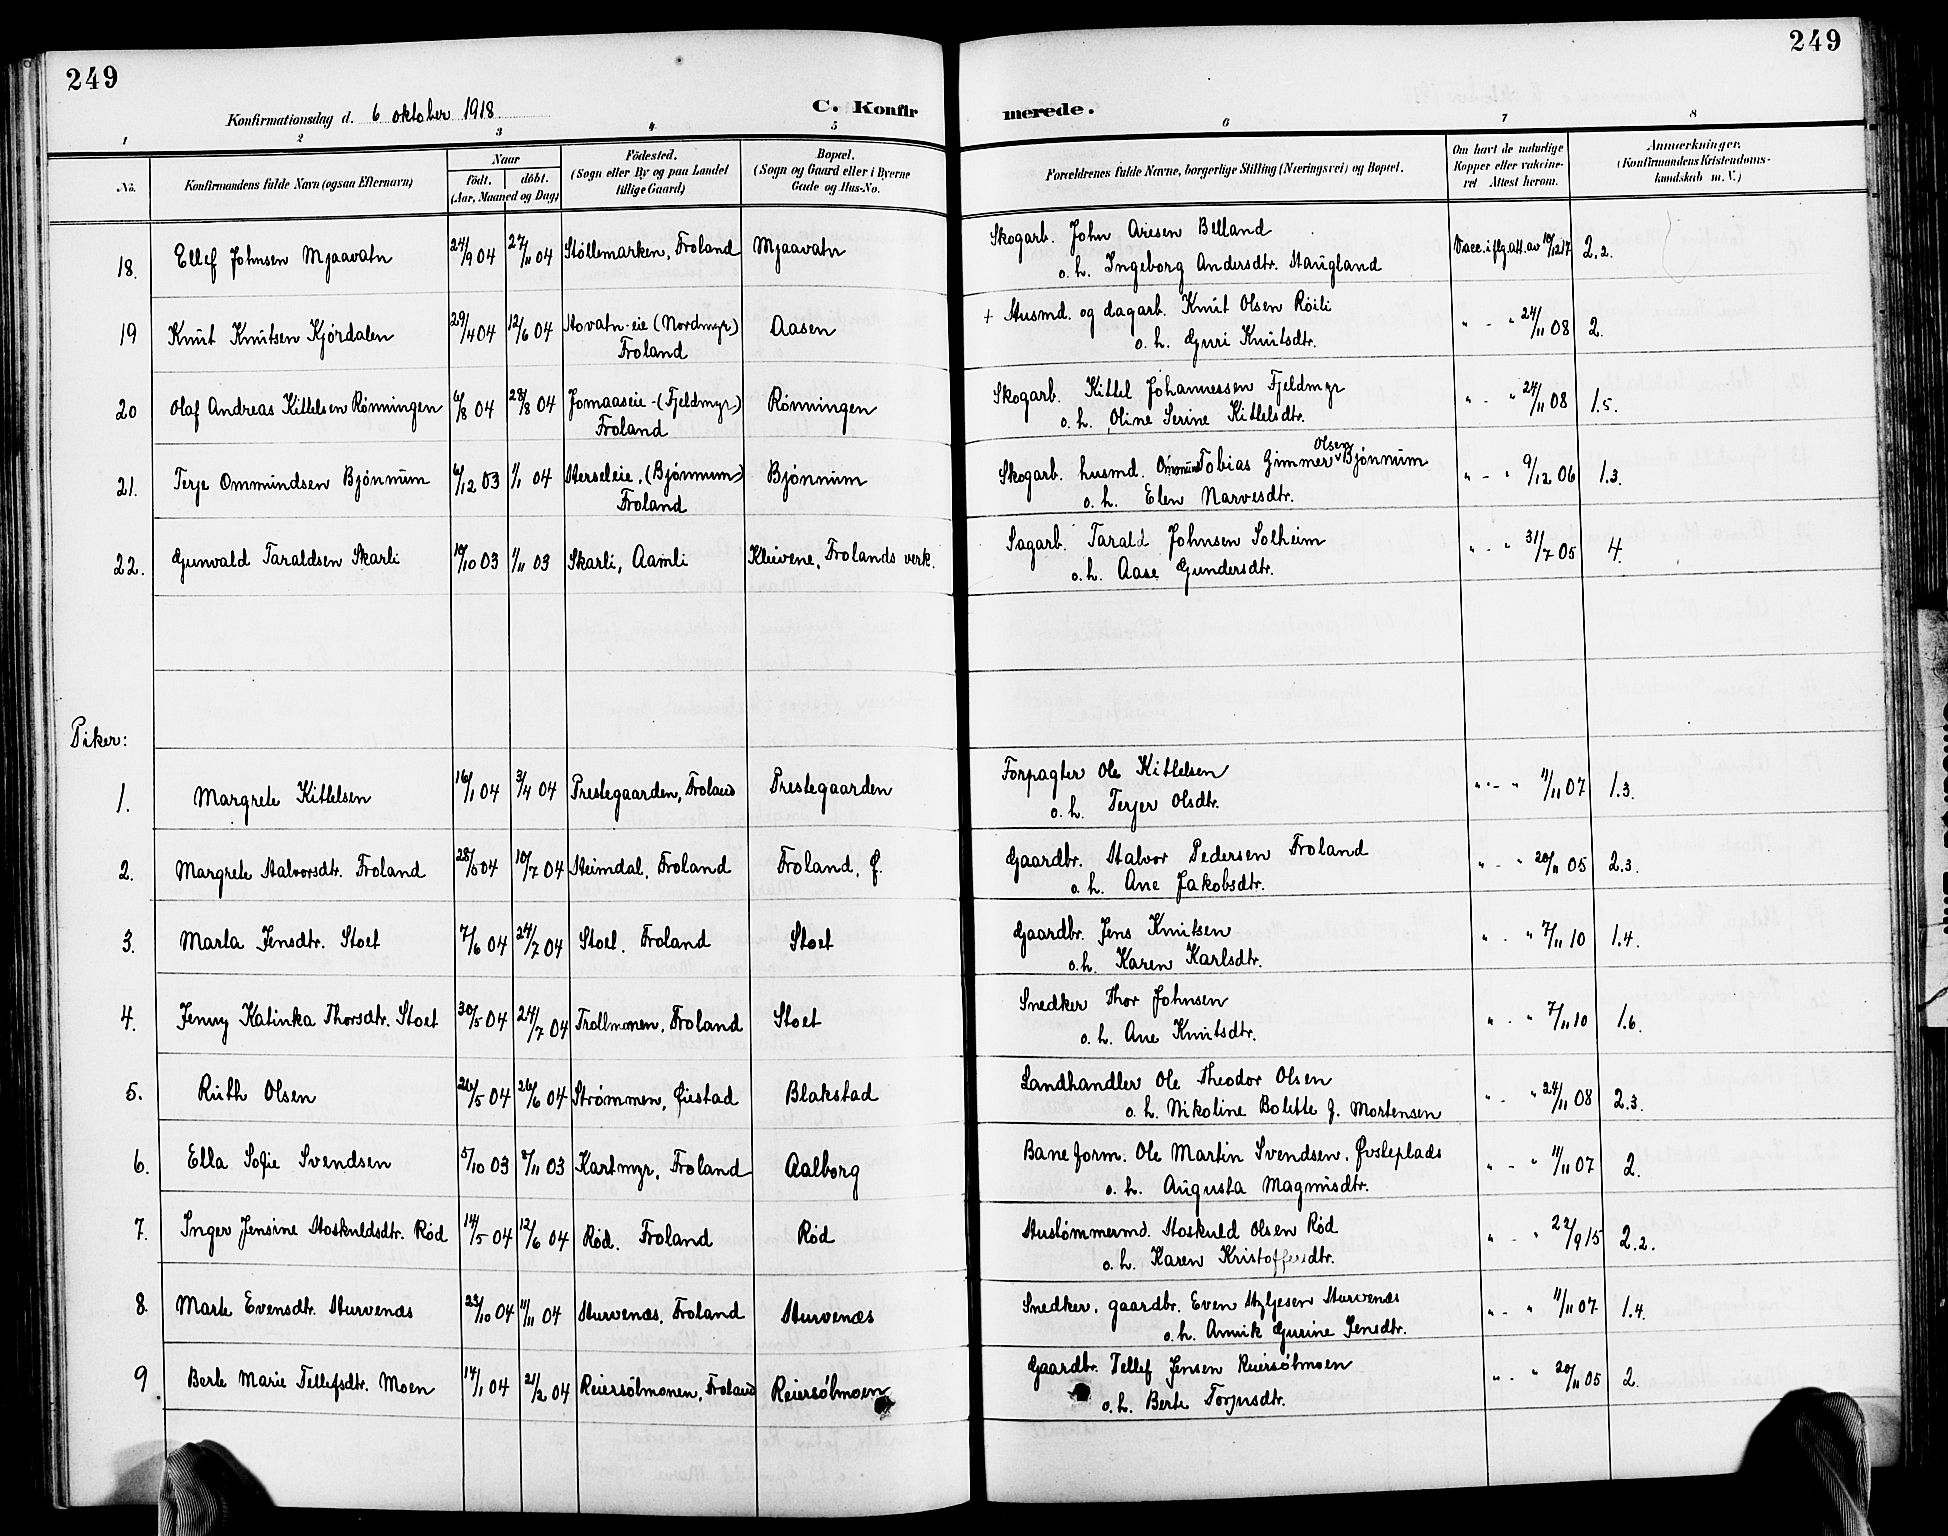 249
249
Konfirmationsdag d. 6 oktober 1918.
C. Konfirmerede.
1 2 3 4 5 6 7 8
No. Konfirmandens fulde Navn (ogsaa Efternavn) Naar födt. döbt. (Aar, Maaned og Dag) Födested. (Sogn eller By og paa Landet tillige Gaard) Bopæl. (Sogn og Gaard eller i Byerne Gade og Hus-No. Forældrenes fulde Navne, borgerlige Stilling (Næringsvei) og Bopæl. Om havt de naturlige Kopper eller vakcineret Attest herom. Anmærkninger. (Konfirmandens Kristendomskundskab m. V.)
18. Ellef Johnsen Mjaavatn 24/9 04 27/11 04 Støllemarken, Froland Mjaavatn Skogarb. John Aresen Belland Vacc. iflg. att. av 10/12 17 2.2.
o. h. Ingeborg Andersdtr. Haugland
19 Knut Knutsen Kjørdalen 29/4 04 12/6 04 Hovatn-eie (Nordmyr) Froland Aasen + Husmd. og dagarb. Knut Olsen Röili " - " 24/11 08 2.
o. h. Guri Knutsdtr.
20 Olaf Andreas Kittelsen Rönningen 6/8 04 28/8 04 Jomaaseie - (Fjeldmyr) Froland Rönningen Skogarb. Kittel Johannessen Fjeldmyr " - " 24/11 08 1.5.
o. h. Oline Serine Kittelsdtr.
21. Terje Ommundsen Bjönnum 6/12 03 1/1 04 Herseleie, (Bjönnum) Froland Bjönnum Skogarb. husmd. Ommund Tobias Gimmer Olsen Bjönnum " - " 9/12 06 1.3.
o. h. Elen Narvesdtr.
22. Gunvald Taraldsen Skarli 19/10 03 1/11 03 Skarli, Aamli Kleivene, Frolands verk. Sagarb. Tarald Johnsen Solheim " - " 31/7 05 4.
o. h. Aase Gundersdtr.
Piker:
1. Margrete Kittelsen 16/1 04 3/4 04 Prestegaarden, Froland Prestegaarden Forpagter Ole Kittelsen " - " 11/11 07 1.3.
o. h. Terjer Olsdtr.
2. Margrete Halvorsdtr. Froland 28/5 04 10/7 04 Heimdal, Froland Froland, Ø. Gaardbr. Halvor Pedersen Froland " - " 20/11 05 2.3.
o. h. Ane Jakobsdtr.
3. Marta Jensdtr. Stoet 7/6 04 24/7 04 Stoet. Froland Stoet Gaardbr. Jens Knutsen " - " 7/11 10 1.4.
o. h. Karen Karlsdtr.
4. Jenny Katinka Thorsdtr. Stoet 30/5 04 24/7 04 Trollmonen, Froland Stoet Snedker Thor Johnsen " - " 7/11 10 1.6.
o. h. Ane Knutsdtr.
5. Ruth Olsen 26/5 04 26/6 04 Strømmen, Øiestad Blakstad Landhandler Ole Theodor Olsen " - " 24/11 08 2.3.
o. h. Nikoline Bolette f. Mortensen
6. Ella Sofie Svendsen 5/10 03 8/11 03 Kartmyr, Froland Aalborg Baneform. Ole Martin Svendsen, Øvsteplads " - " 11/11 07 2.
o. h. Augusta Magnusdtr.
7. Inger Jensine Hoskuldsdtr. Rød 14/5 04 12/6 04 Rød. Froland Rød Hustømmermd. Hoskuld Olsen Rød " - " 22/9 15 2.2.
o. h. Karen Kristoffersdtr.
8. Marte Evensdtr. Hurvenæs 23/10 04 11/11 04 Hurvenæs, Froland Hurvenæs Snedker, gaardbr. Even Hyljesen Hurvenæs " - " 11/11 07 1.4.
o. h. Annik Gurine Jensdtr.
9 Berte Marie Tellefsdtr. Moen 14/1 04 21/2 04 Reiersølmonen, Froland Reiersølmoen Gaardbr. Tellef Jensen Reiersølmoen " - " 20/11 05 2.
o. h. Berte Torjusdtr.